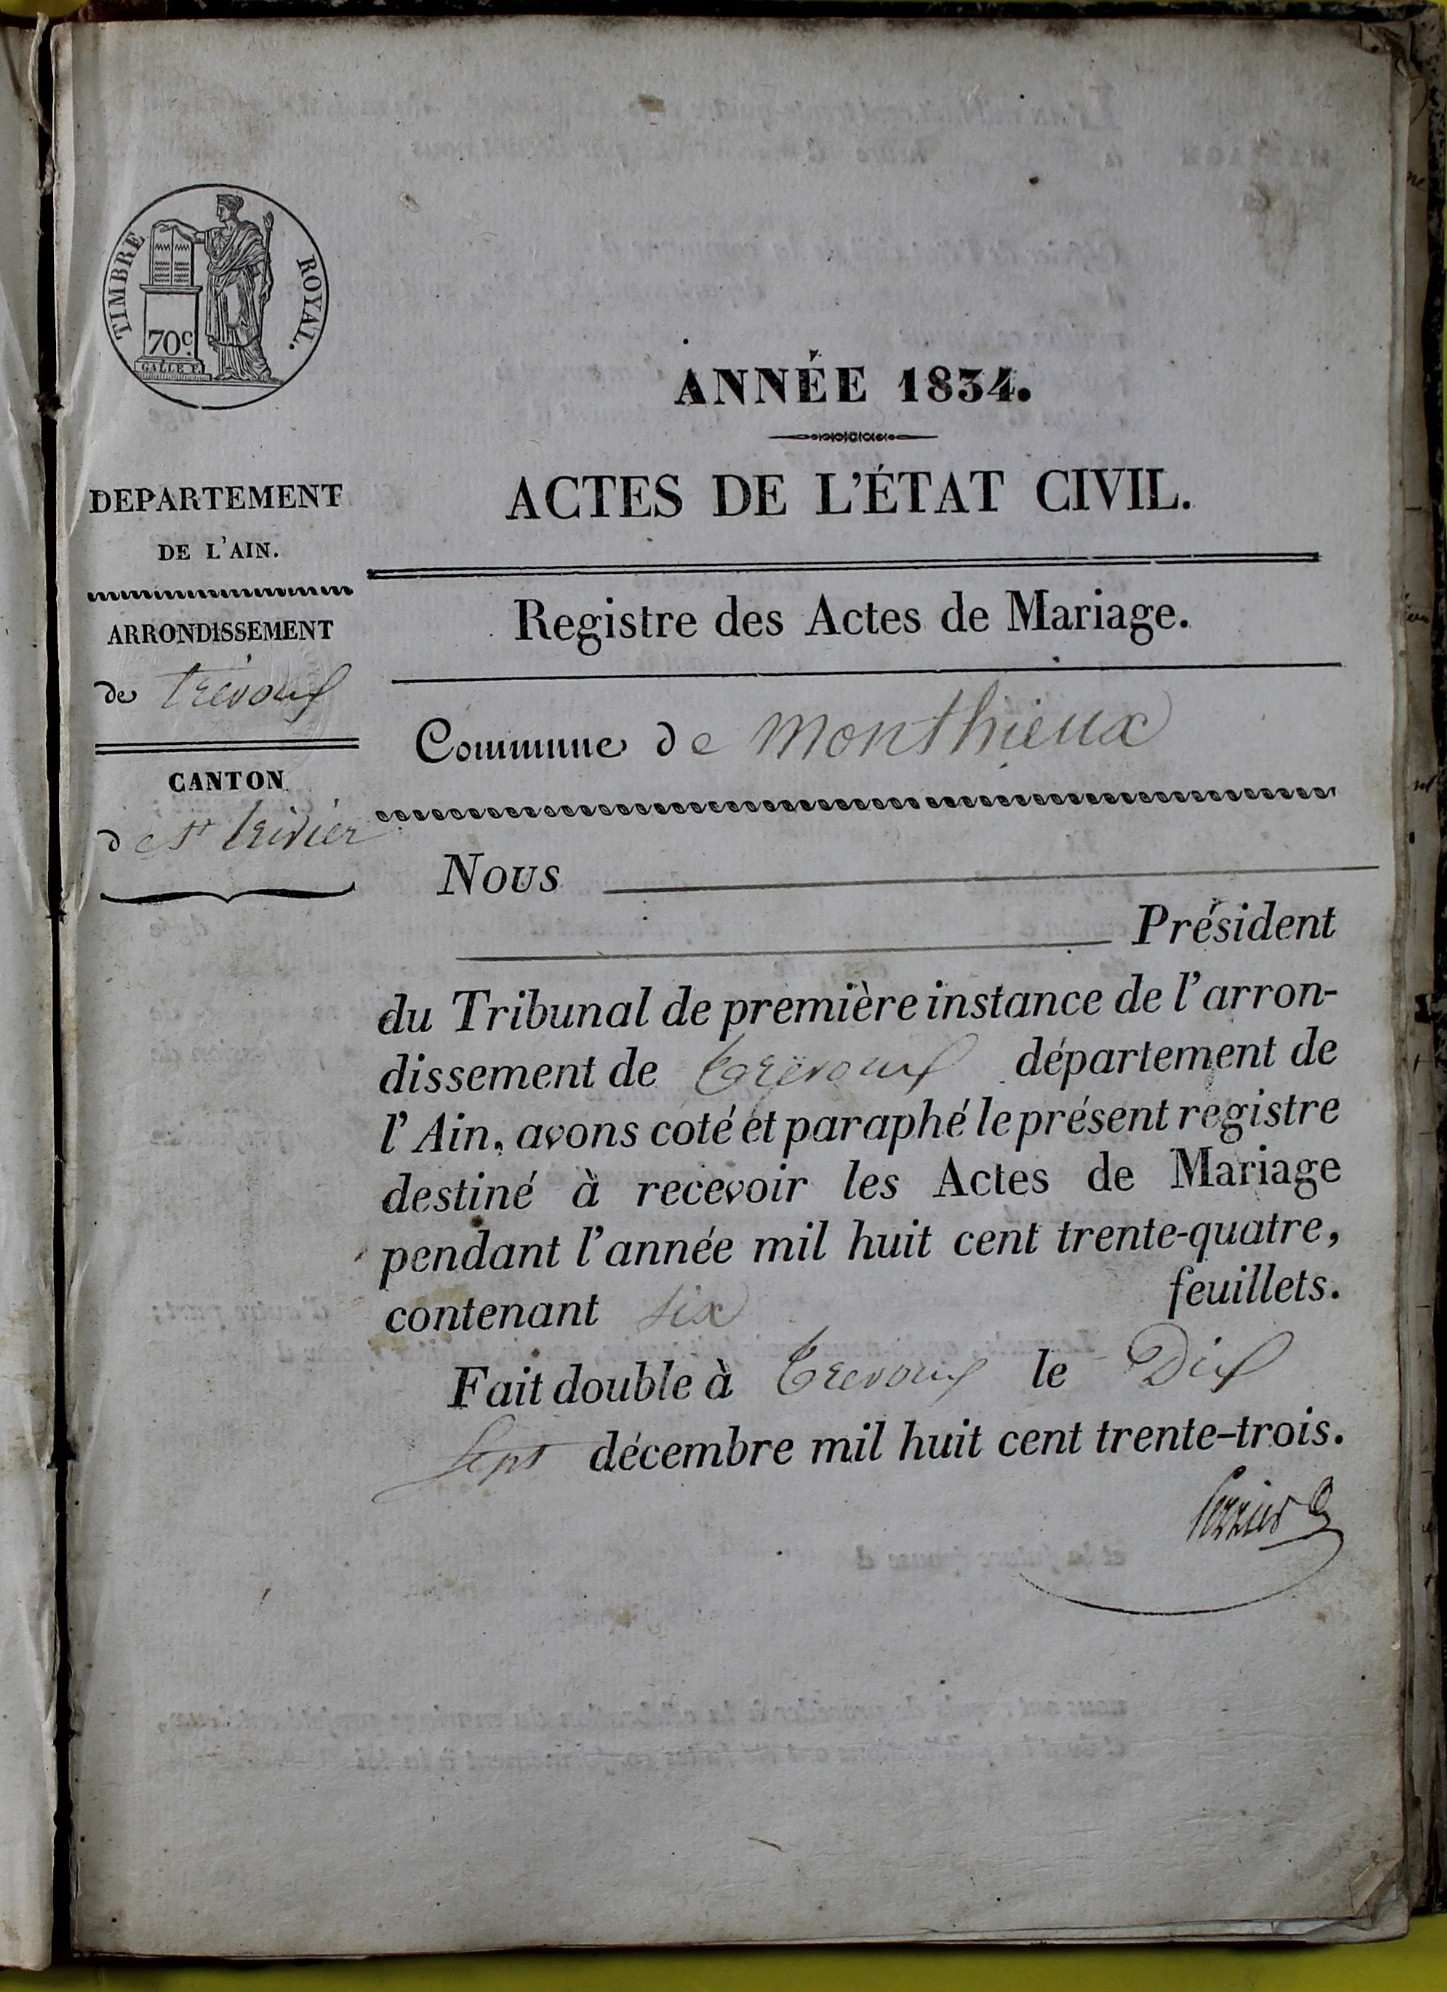 TIMBRE ROYAL.
70c.
GALLE F.
DEPARTEMENT
DE L'AIN.
ARRONDISSEMENT
de Trévoux
CANTON
de St trivier
ANNÉE 1834.
ACTES DE L'ÉTAT CIVIL.
Registre des Actes de Mariage.
Commune de Monthieux
Nous
Président
du Tribunal de première instance de l'arron-
dissement de Trévoux département de
l'Ain, avons coté et paraphé le présent registre
destiné à recevoir les Actes de Mariage
pendant l'année mil huit cent trente-quatre,
contenant six feuillets.
Fait double à Trevoux le Dix
Sept décembre mil huit cent trente-trois.